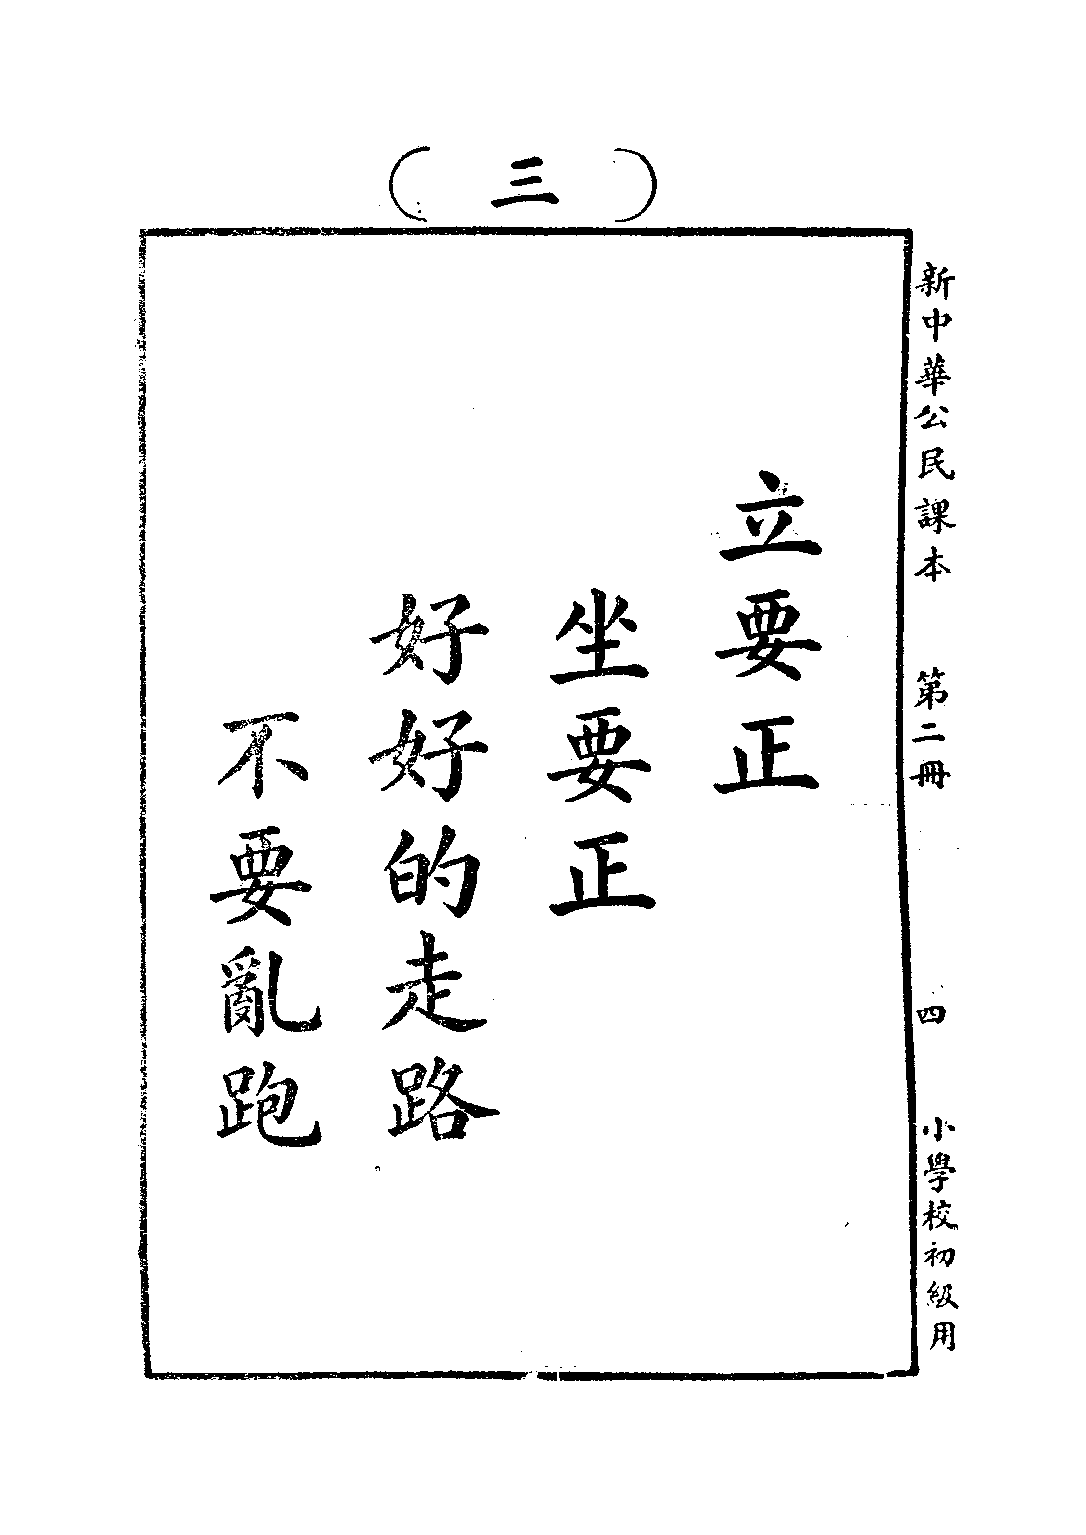 （三）
新中華公民課本　第二冊　四　小學校初級用
立要正
坐要正
好好的走路
不要亂跑